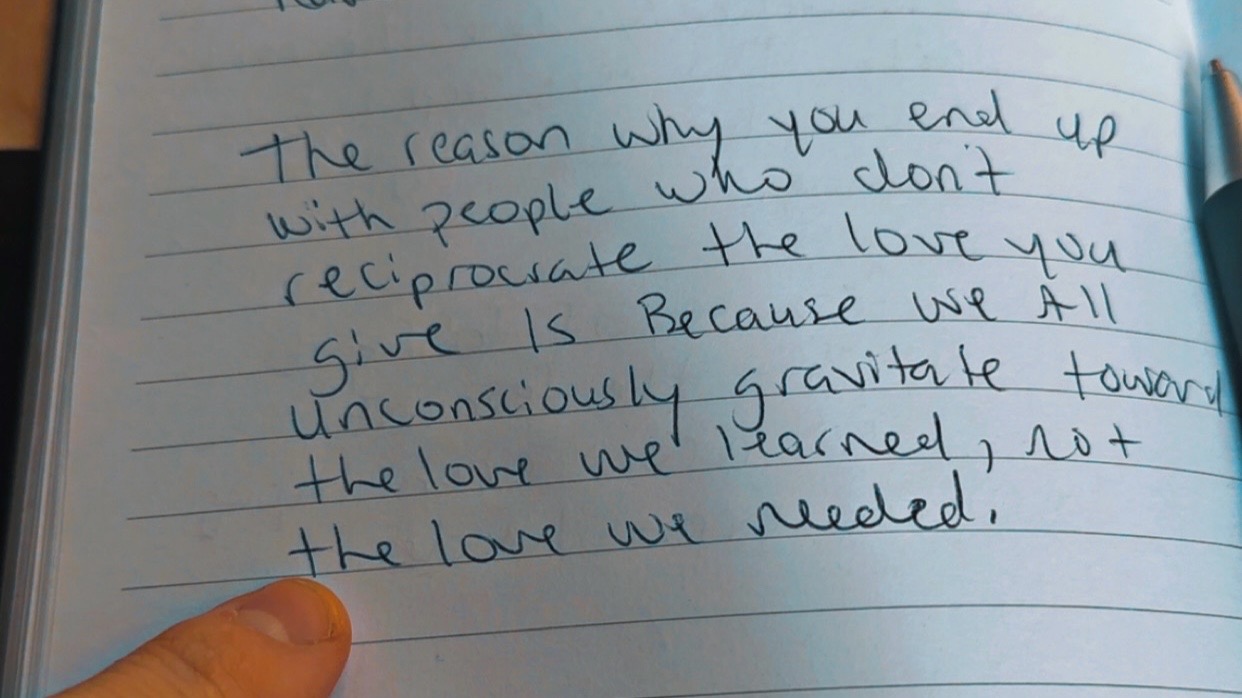 the reason why you end up
with people who don't
reciprocrate the love you
give Is Because we All
unconsciously gravitate toward
the love we learned, not
the love we needed.